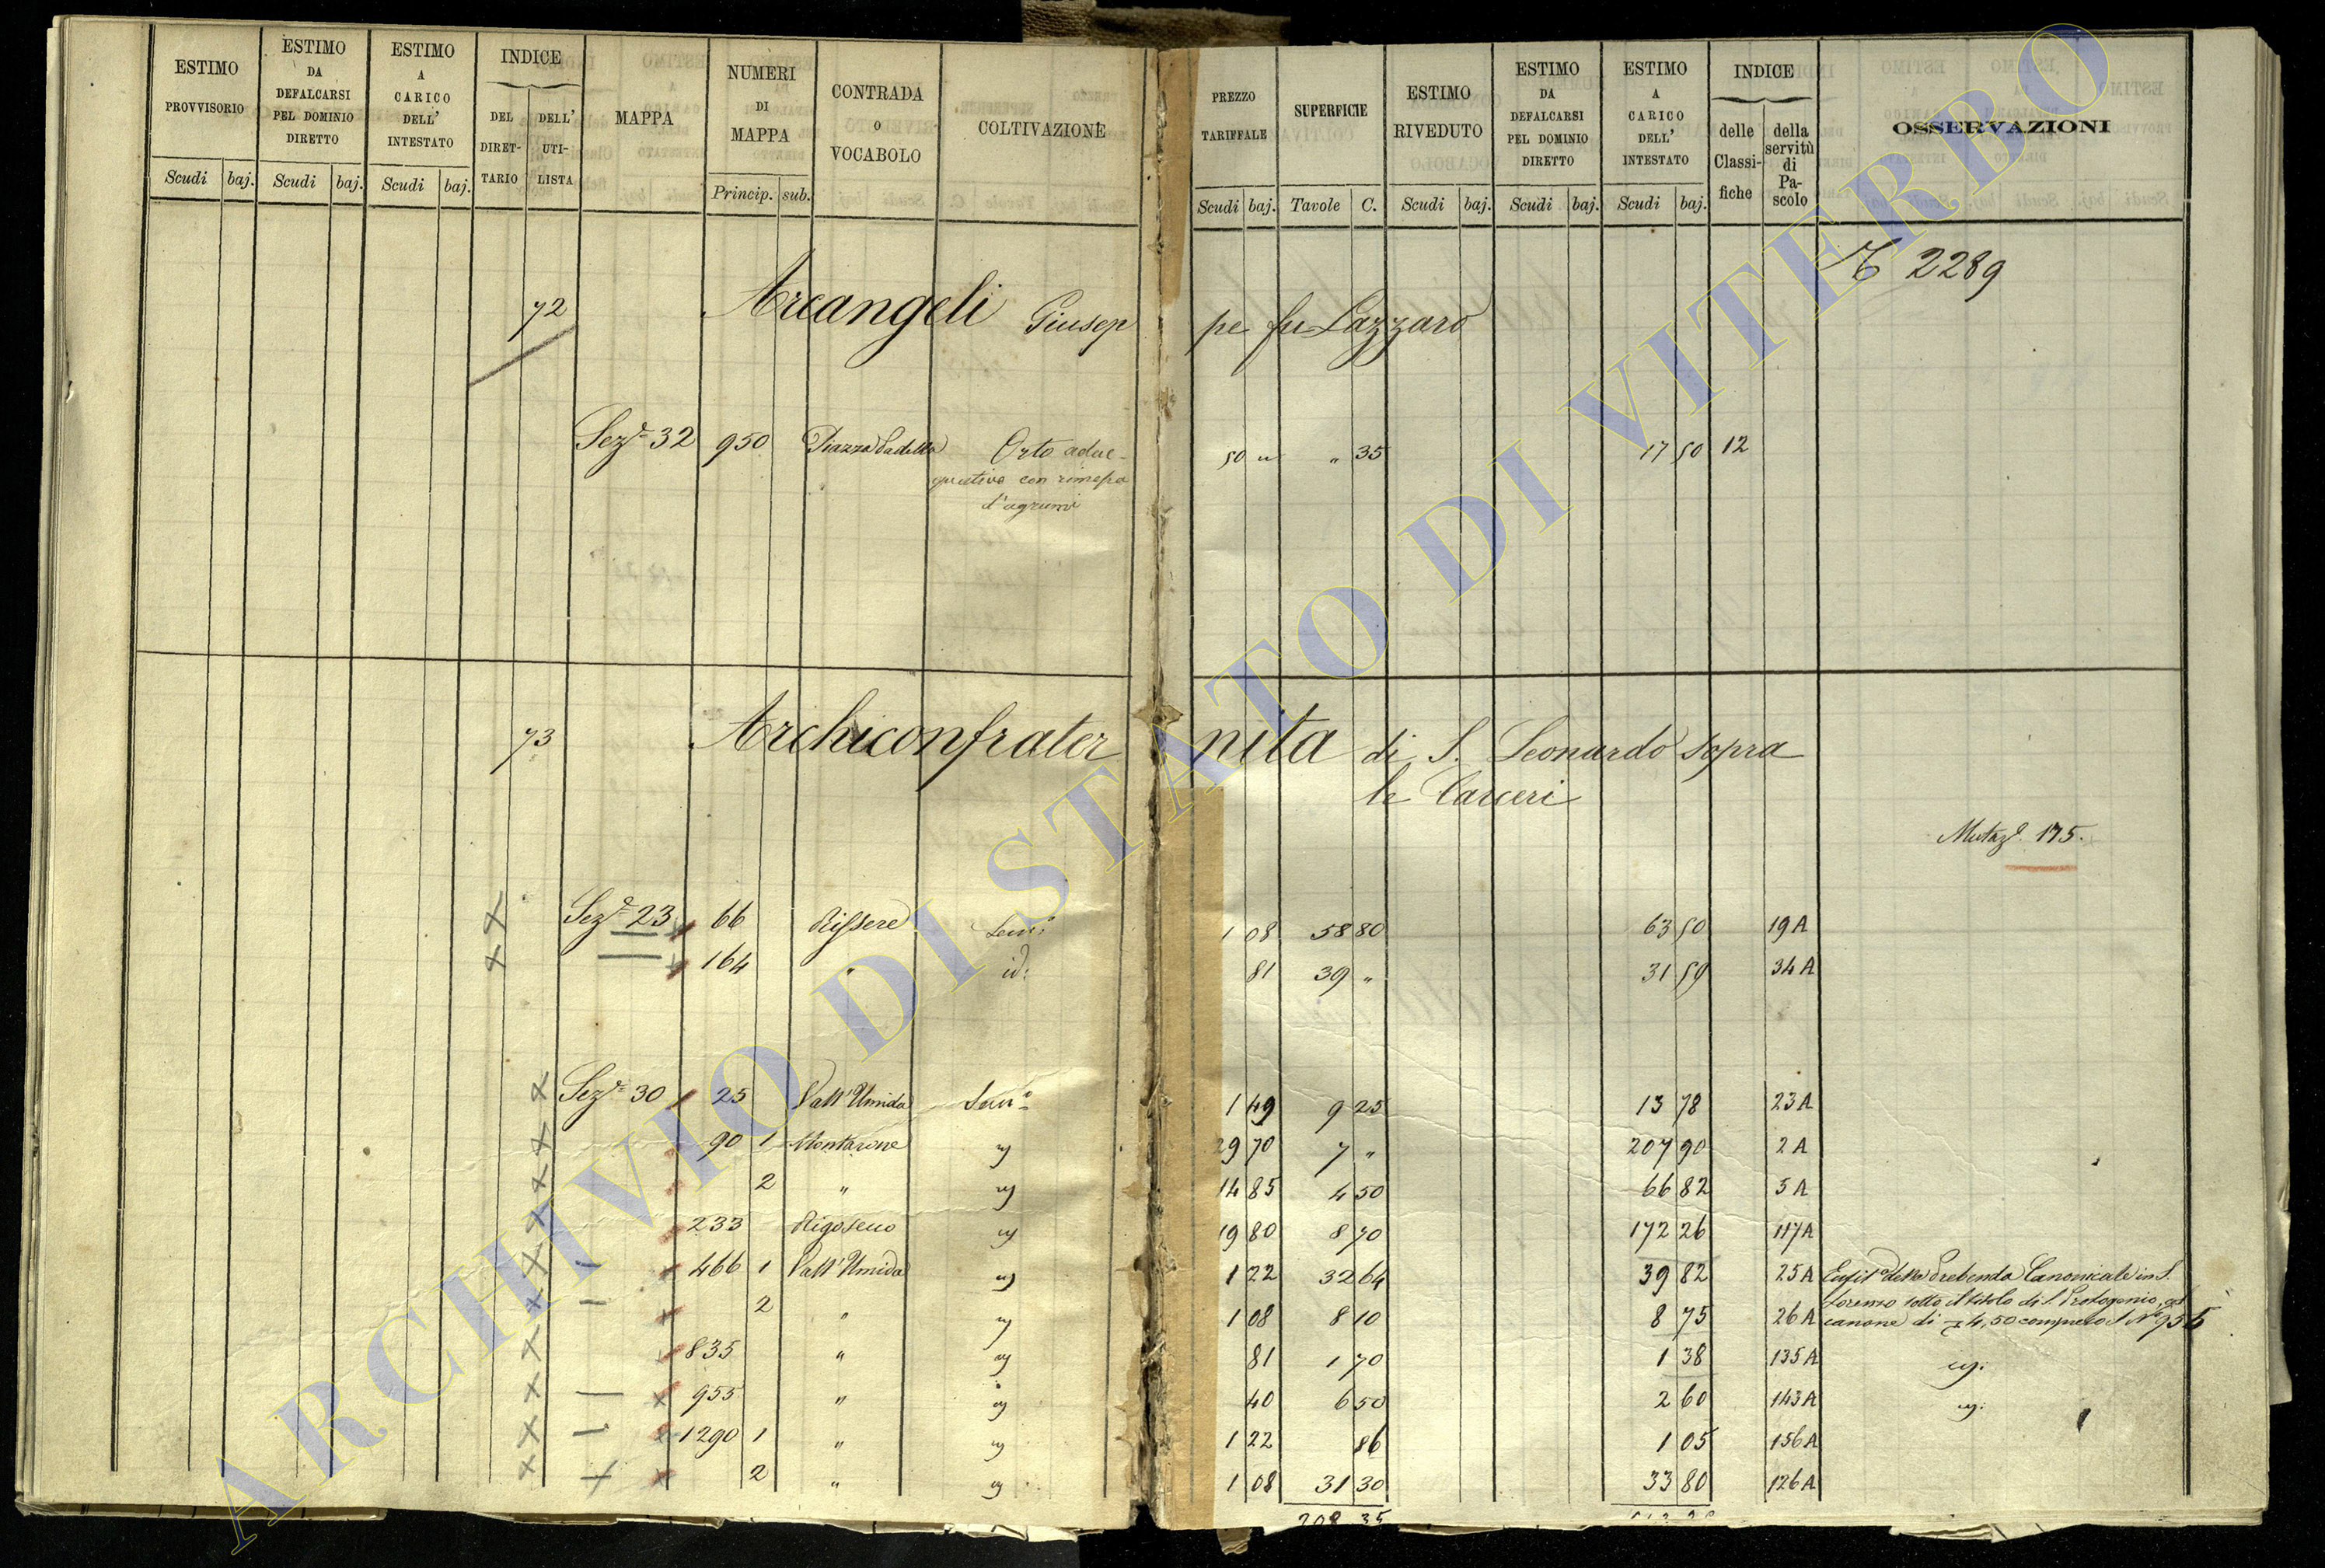 ESTIMO PROVVISORIO Scudi baj.
ESTIMO DA DEFALCARSI PEL DOMINIO DIRETTO Scudi baj.
ESTIMO A CARICO DELL' INTESTATO Scudi baj.
INDICE DEL DIRETTARIO DELL' UTILISTA
MAPPA
NUMERI DI MAPPA Princip. sub.
CONTRADA O VOCABOLO
COLTIVAZIONE
PREZZO TARIFFALE Scudi baj.
SUPERFICIE Tavole C.
ESTIMO RIVEDUTO Scudi baj.
ESTIMO DA DEFALCARSI PEL DOMINIO DIRETTO Scudi baj.
ESTIMO A CARICO DELL' INTESTATO Scudi baj.
INDICE delle Classifiche della servitù di Pascolo
OSSERVAZIONI
2289
72 Arcangeli Giuseppe fu Lazzaro
Sez.e 32 950 Piazza Padella Orto adac- 50 " " 35 17 50 12
quativo con rimessa
d'agrumi
73 Archiconfraternita di S. Leonardo sopra
le Carceri
Mutaz.e 175.
Sez.e 23 66 Rissere Sem.o 1 08 58 80 63 50 19A
164 " id: 81 39 " 31 59 34A
Sez.e 30 25 Vall'Umida Sem.o 1 49 9 25 13 78 23A
90 1 Montarone 29 70 7 " 207 90 2A
2 " 14 85 4 50 66 82 5A
233 Rigosecco 19 80 8 70 172 26 117A
466 1 Vall'Umida 1 22 32 64 39 82 25A Enfit.a della Prebenda Canonicale in S.
2 " 1 08 8 10 8 75 26A Lorenzo sotto il titolo di S. Protogonio, col
canone di 4,50 compreso il N.o 955
835 " 81 1 70 1 38 135A
955 " 40 6 50 2 60 143A
1290 1 " 1 22 86 1 05 156A
2 " 1 08 31 30 33 80 126A
208 35
ARCHIVIO DI STATO DI VITERBO